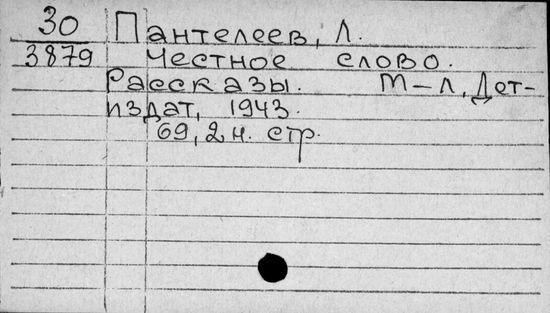 30 Пантелеев, Л.
3879 Честное слово.
Рассказы. М-Л, Дет-
издат, 1943.
69, 2 н. стр.